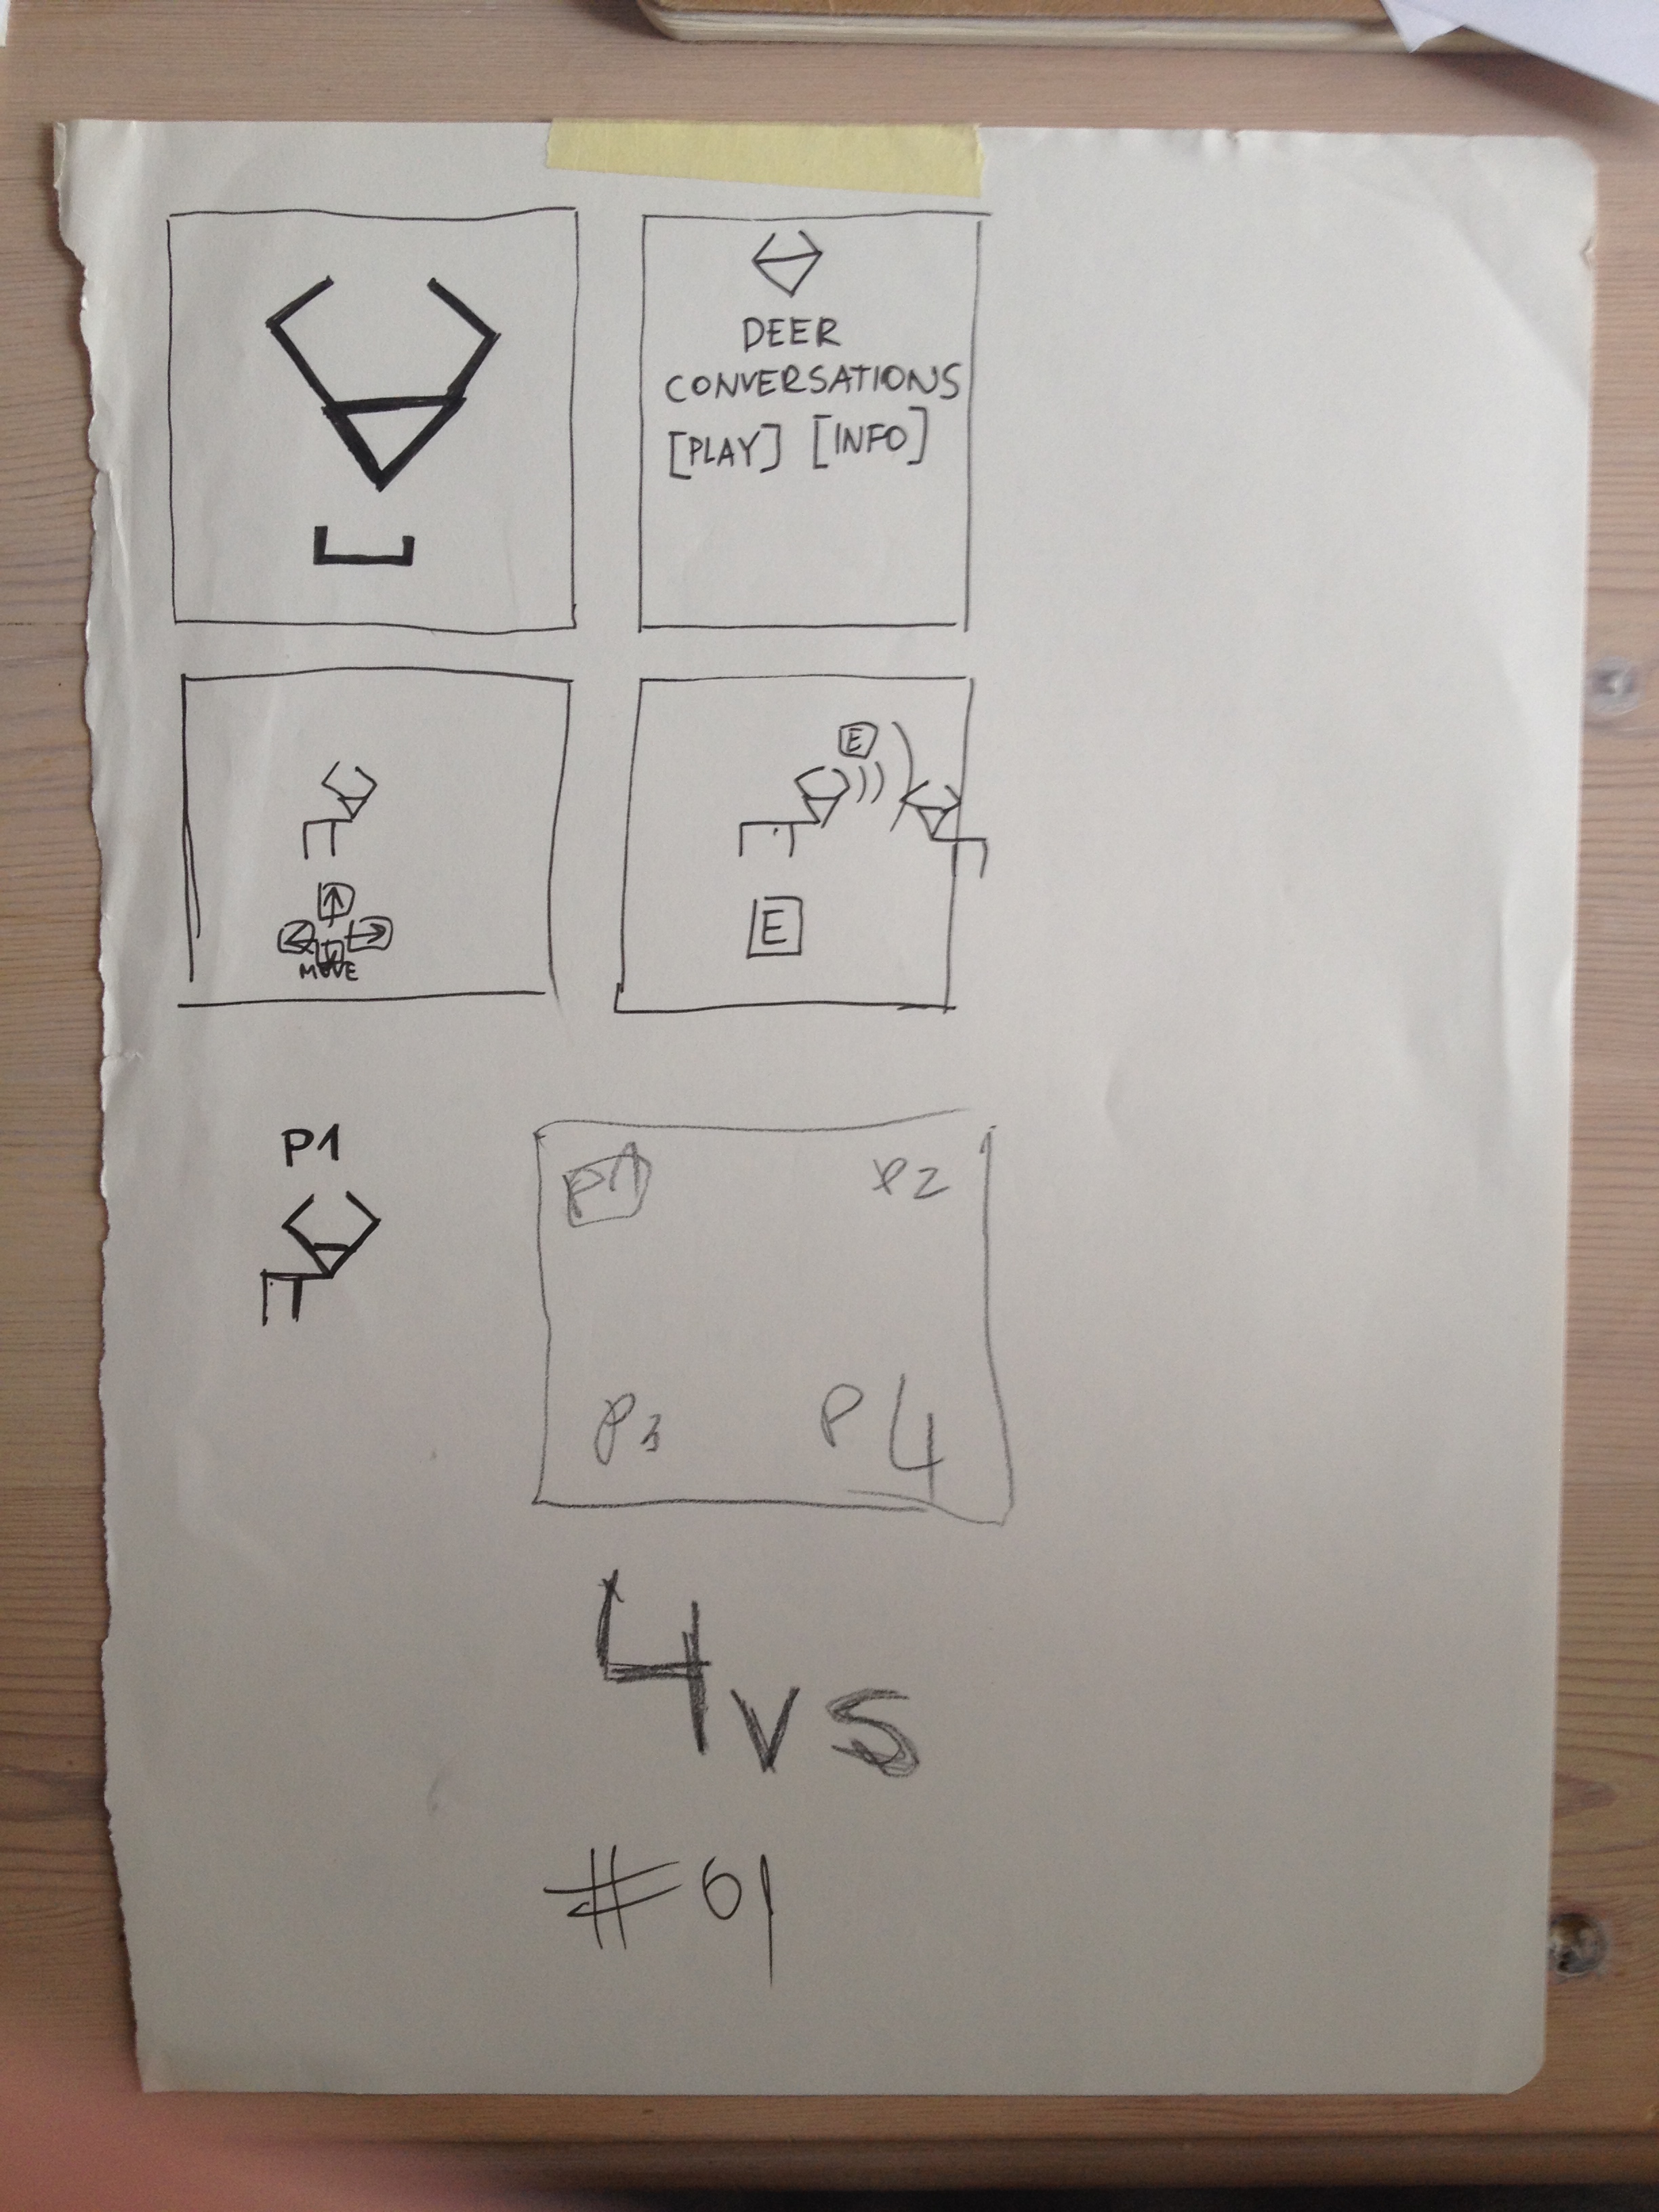 DEER
CONVERSATIONS
[PLAY] [INFO]
MOVE
E
E
P1
P1 P2
P3 P4
4 VS
#01